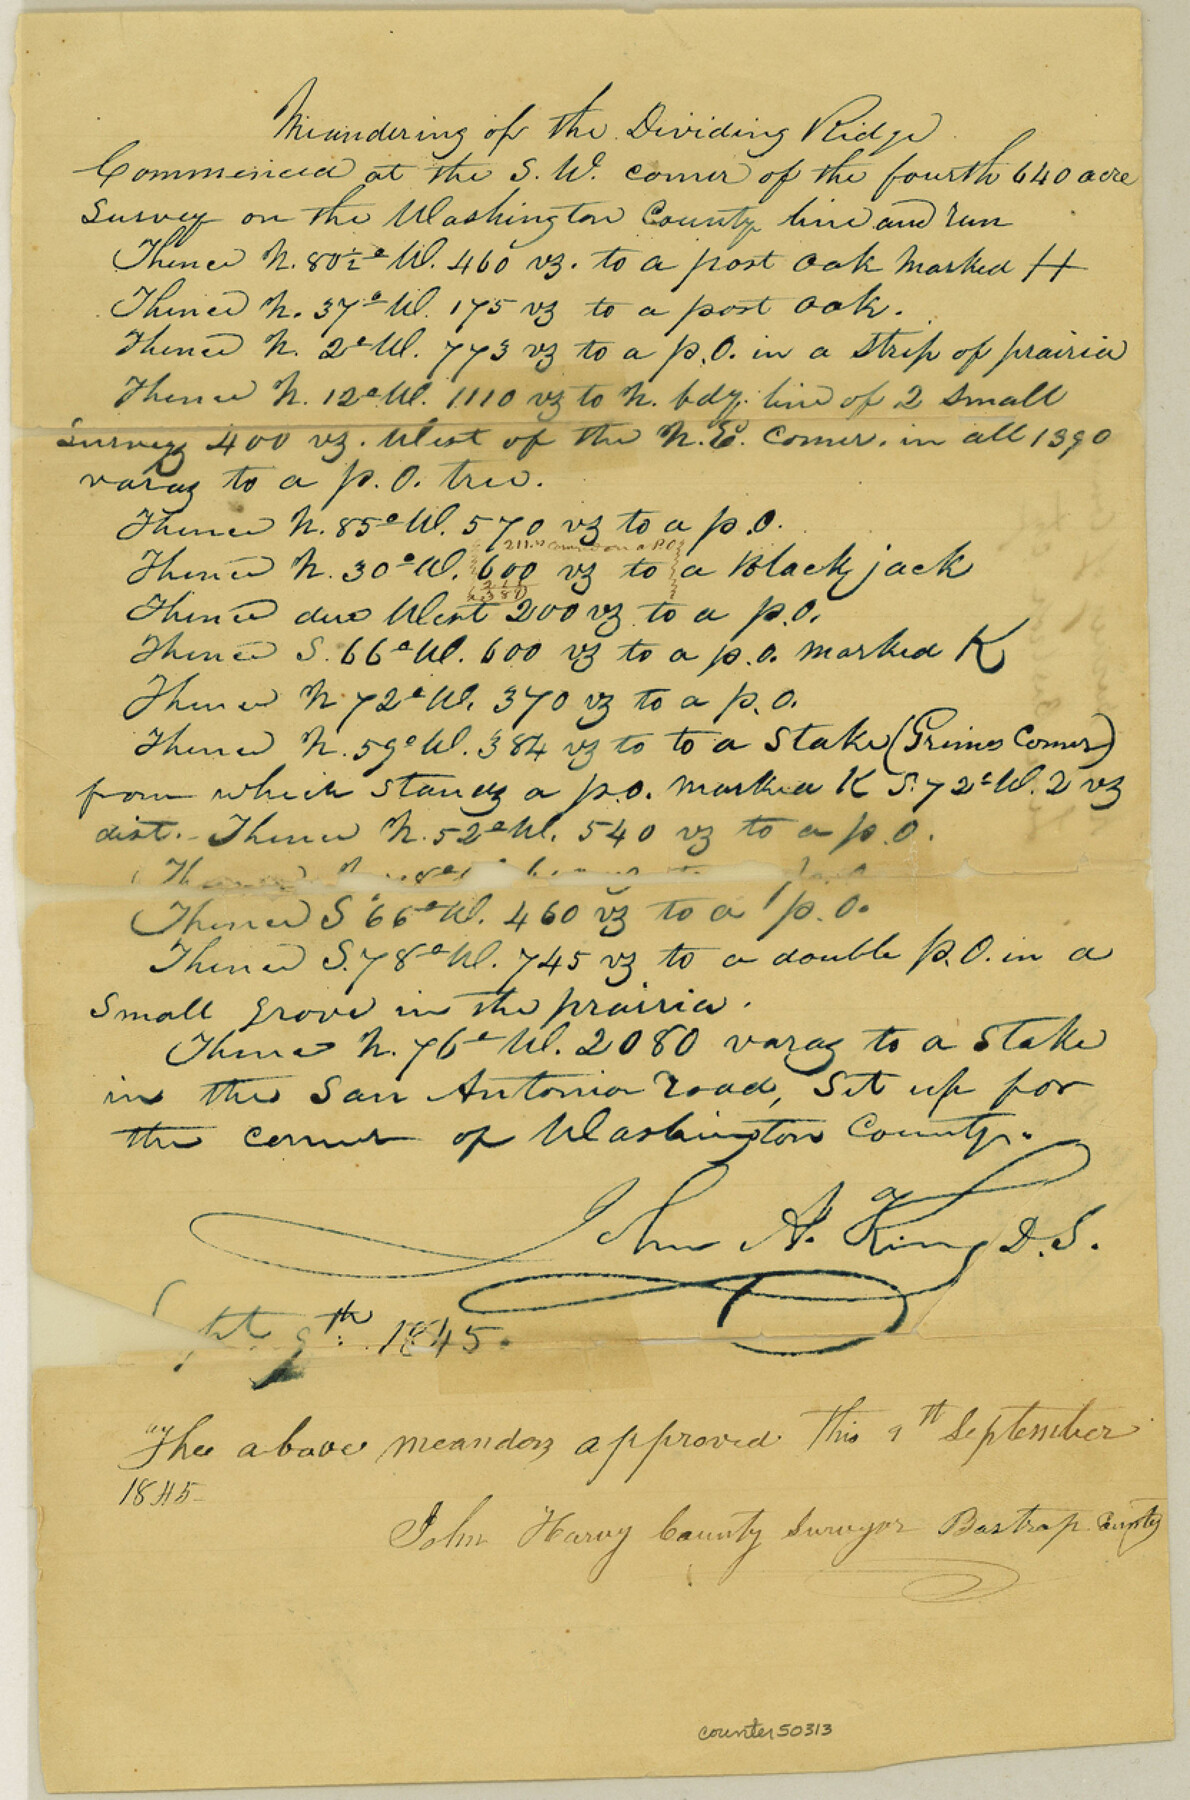 Meandering of the Dividing Ridge
Commenced at the S. W. corner of the fourth 640 acre
Survey on the Washington County line and run
Thence N. 80½° W. 460 vz. to a post oak marked H
Thence N. 37° W. 175 vz to a post oak.
Thence N. 2° W. 773 vz to a p.O. in a strip of prairia
Thence N. 12° W. 1110 vz to N. bdy. line of 2 small
Surveyz 400 vz. West of the N.E. Corner. in all 1390
varaz to a p. O. tree.
Thence N. 85° W. 570 vz to a p.O.
Thence N. 30° W. 600 vz to a Black jack
Thence due West 200 vz to a p.O.
Thence S. 66° W. 600 vz to a p.o. marked K
Thence N 72° W. 370 vz to a p.O.
Thence N. 59° W. 384 vz to to a Stake (Grimes Corner)
from which standz a p.o. marked K S. 72° W. 2 vz
dist. - Thence N. 52° W. 540 vz to a p.O.
Thence S 66° W. 460 vz to a p.O.
Thence S. 78° W. 745 vz to a double p.O. in a
small grove in the prairia.
Thence N. 76° W. 2080 varaz to a Stake
in the San Antonia road, Set up for
the corner of Washington County.
John A. King D.S.
9th 1845.
The above meanderz approved this 9th September
1845
John Harvy County Surveyor Bastrop County
counter 50313